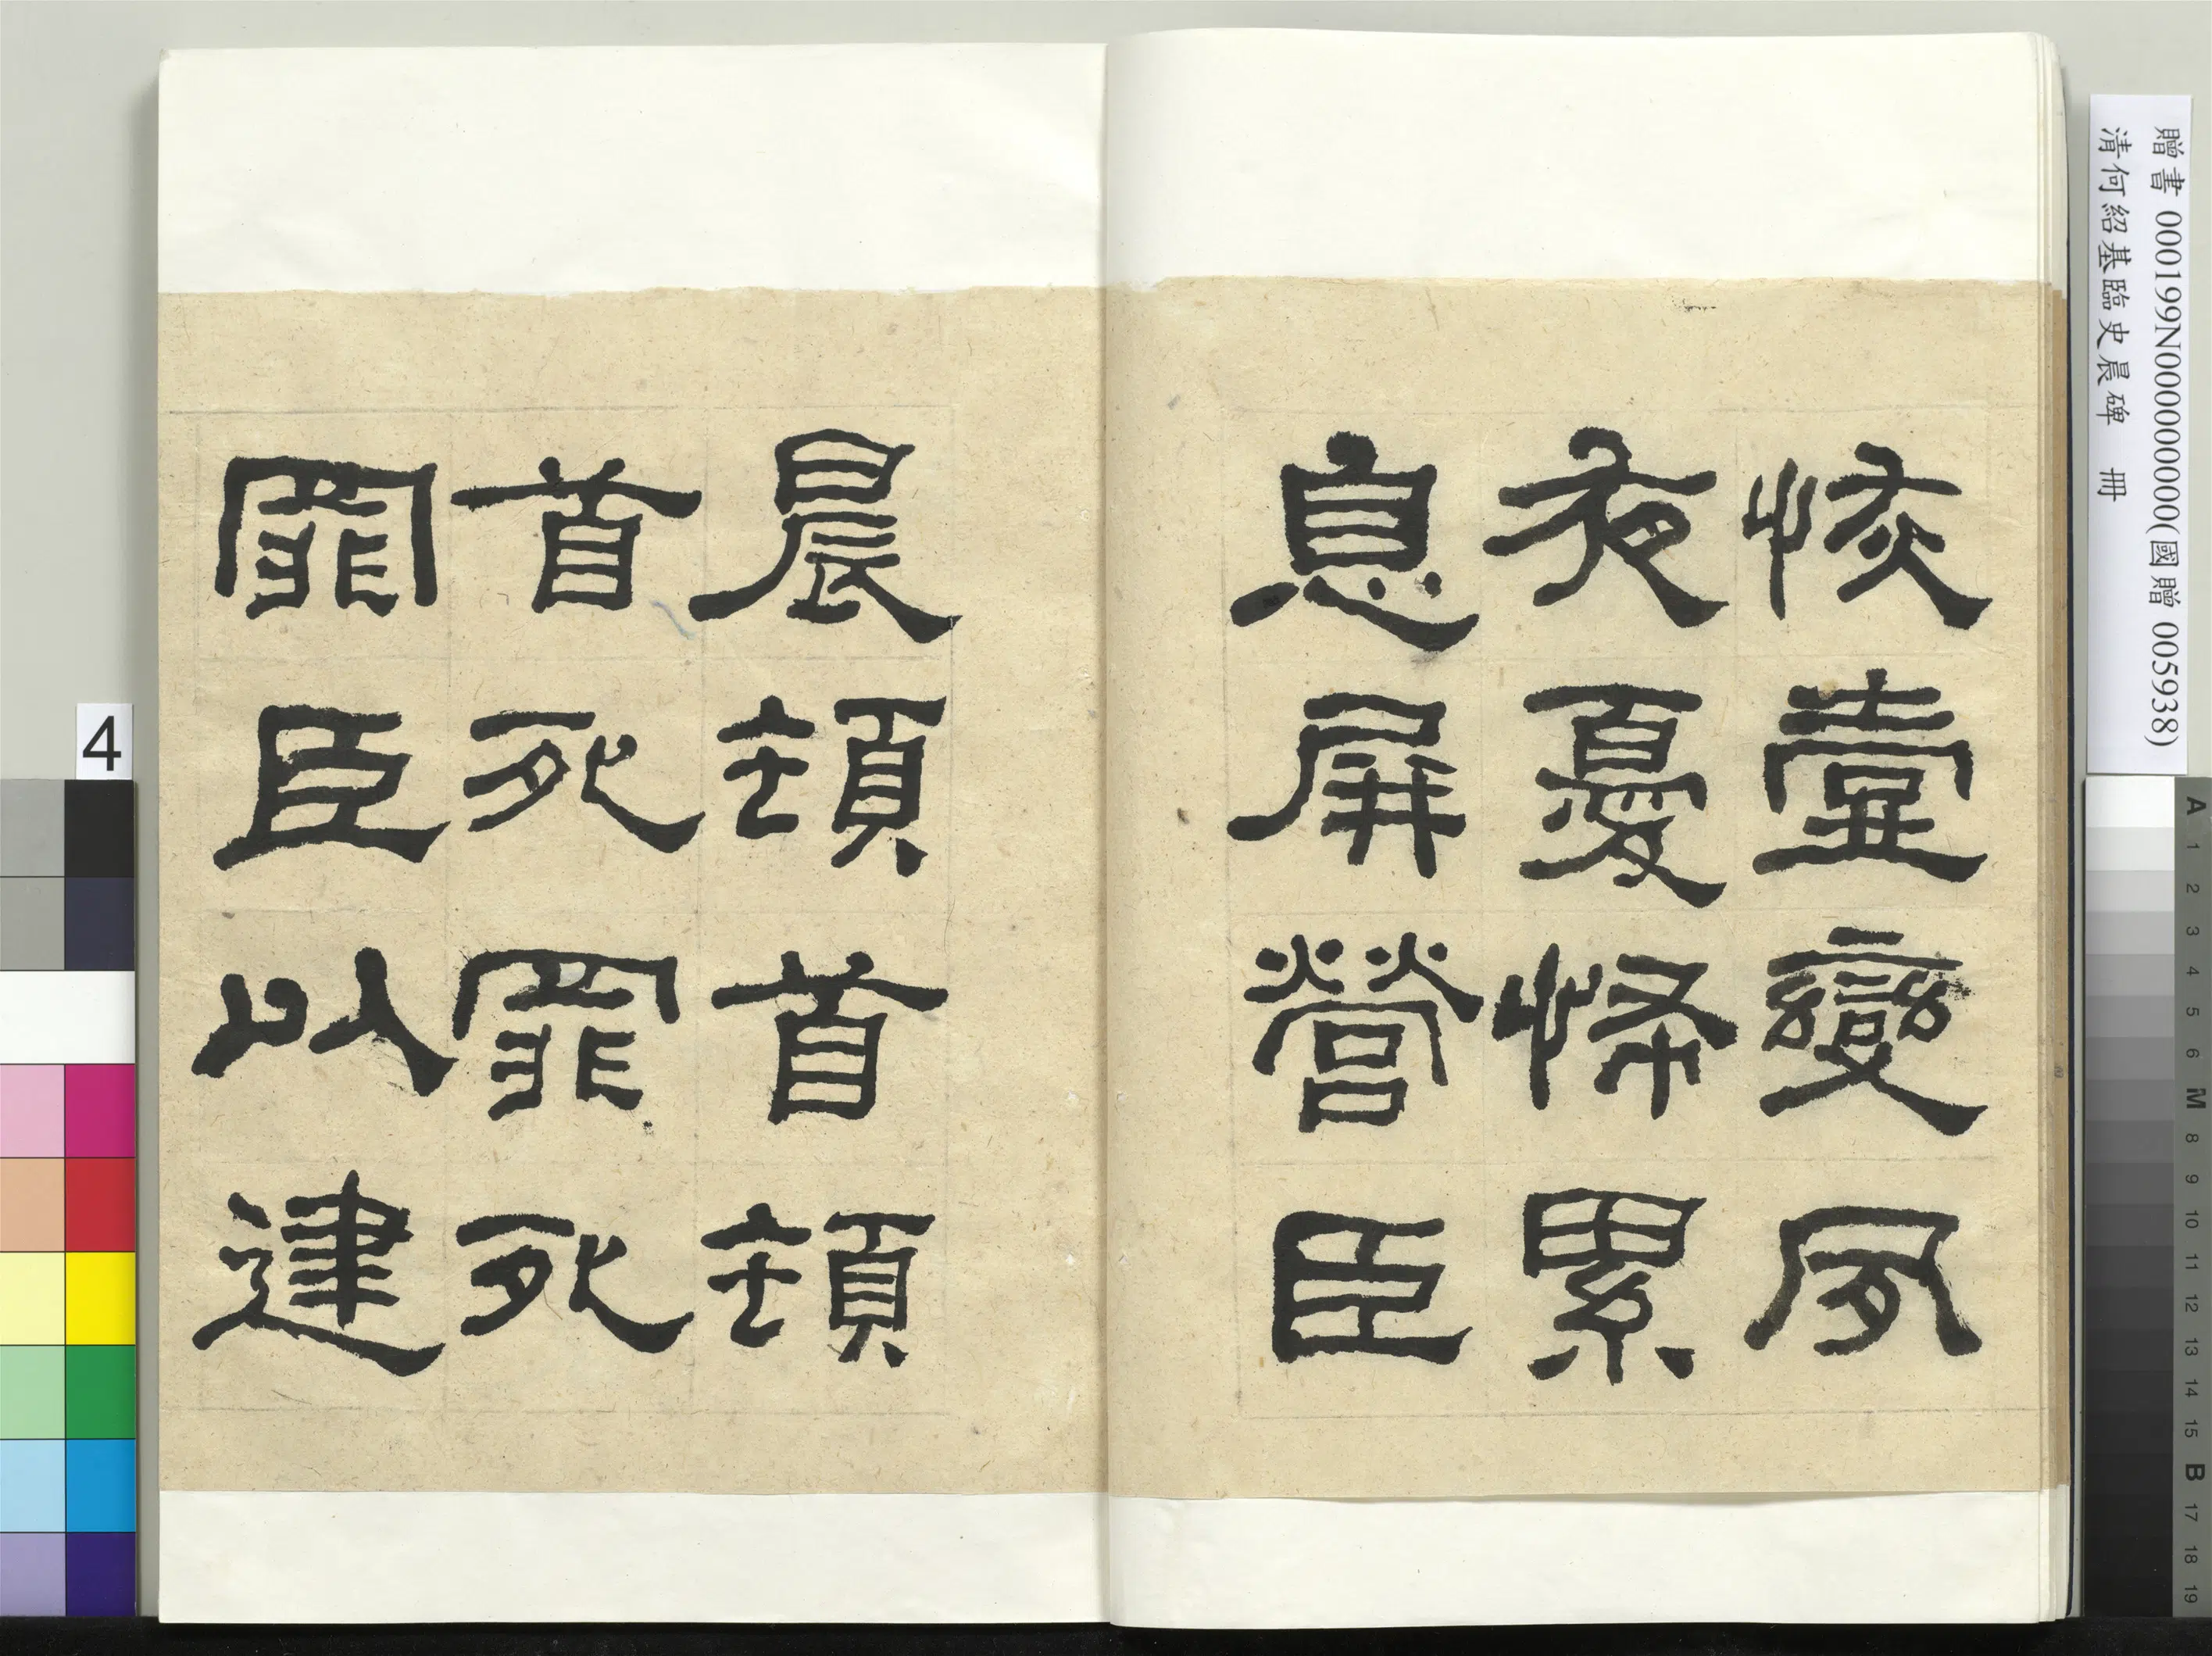 贈書 000199N000000000(國贈 005938)
清何紹基臨史晨碑 冊
恢壹變夙
夜憂怖累
息屏營臣
晨頓首頓
首死罪死
罪臣以建
4
A 1 2 3 4 5 6 M 8 9 10 11 12 13 14 15 B 17 18 19